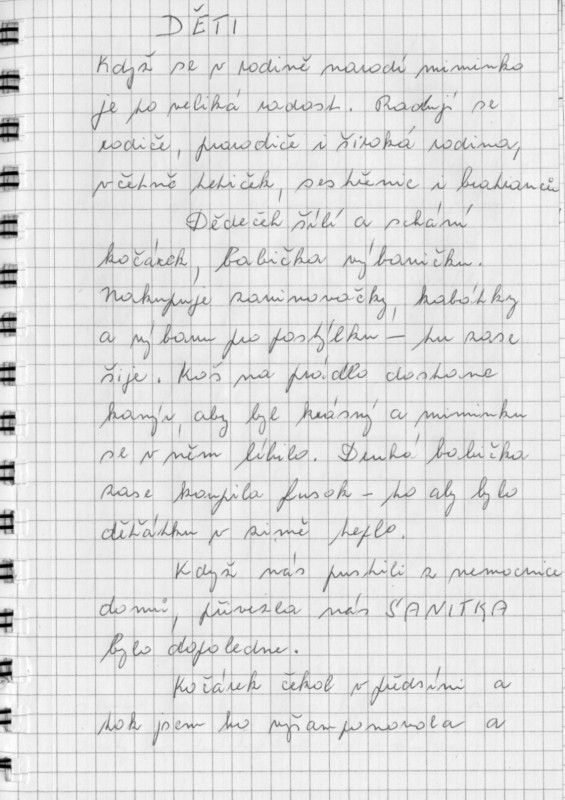 DĚTI
Když se v rodině narodí miminko
je to veliká radost. Radují se
rodiče, prarodiče i široká rodina,
včetně tetiček, sestřenic i bratranců
Dědeček šílí a shání
kočárek, babička výbavičku.
Nakupuje zavinovačky, kabátky
a výbavu pro postýlku – tu zase
šije. Koš na prádlo dostane
kanýr, aby byl krásný a miminku
se v něm líbilo. Druhá babička
zase koupila fusak – to aby bylo
děťátku v zimě teplo.
Když nás pustili z nemocnice
domů, přivezla nás SANITKA
bylo dopoledne.
Kočárek čekal v předsíni a
tak jsem ho vyšamponovala a